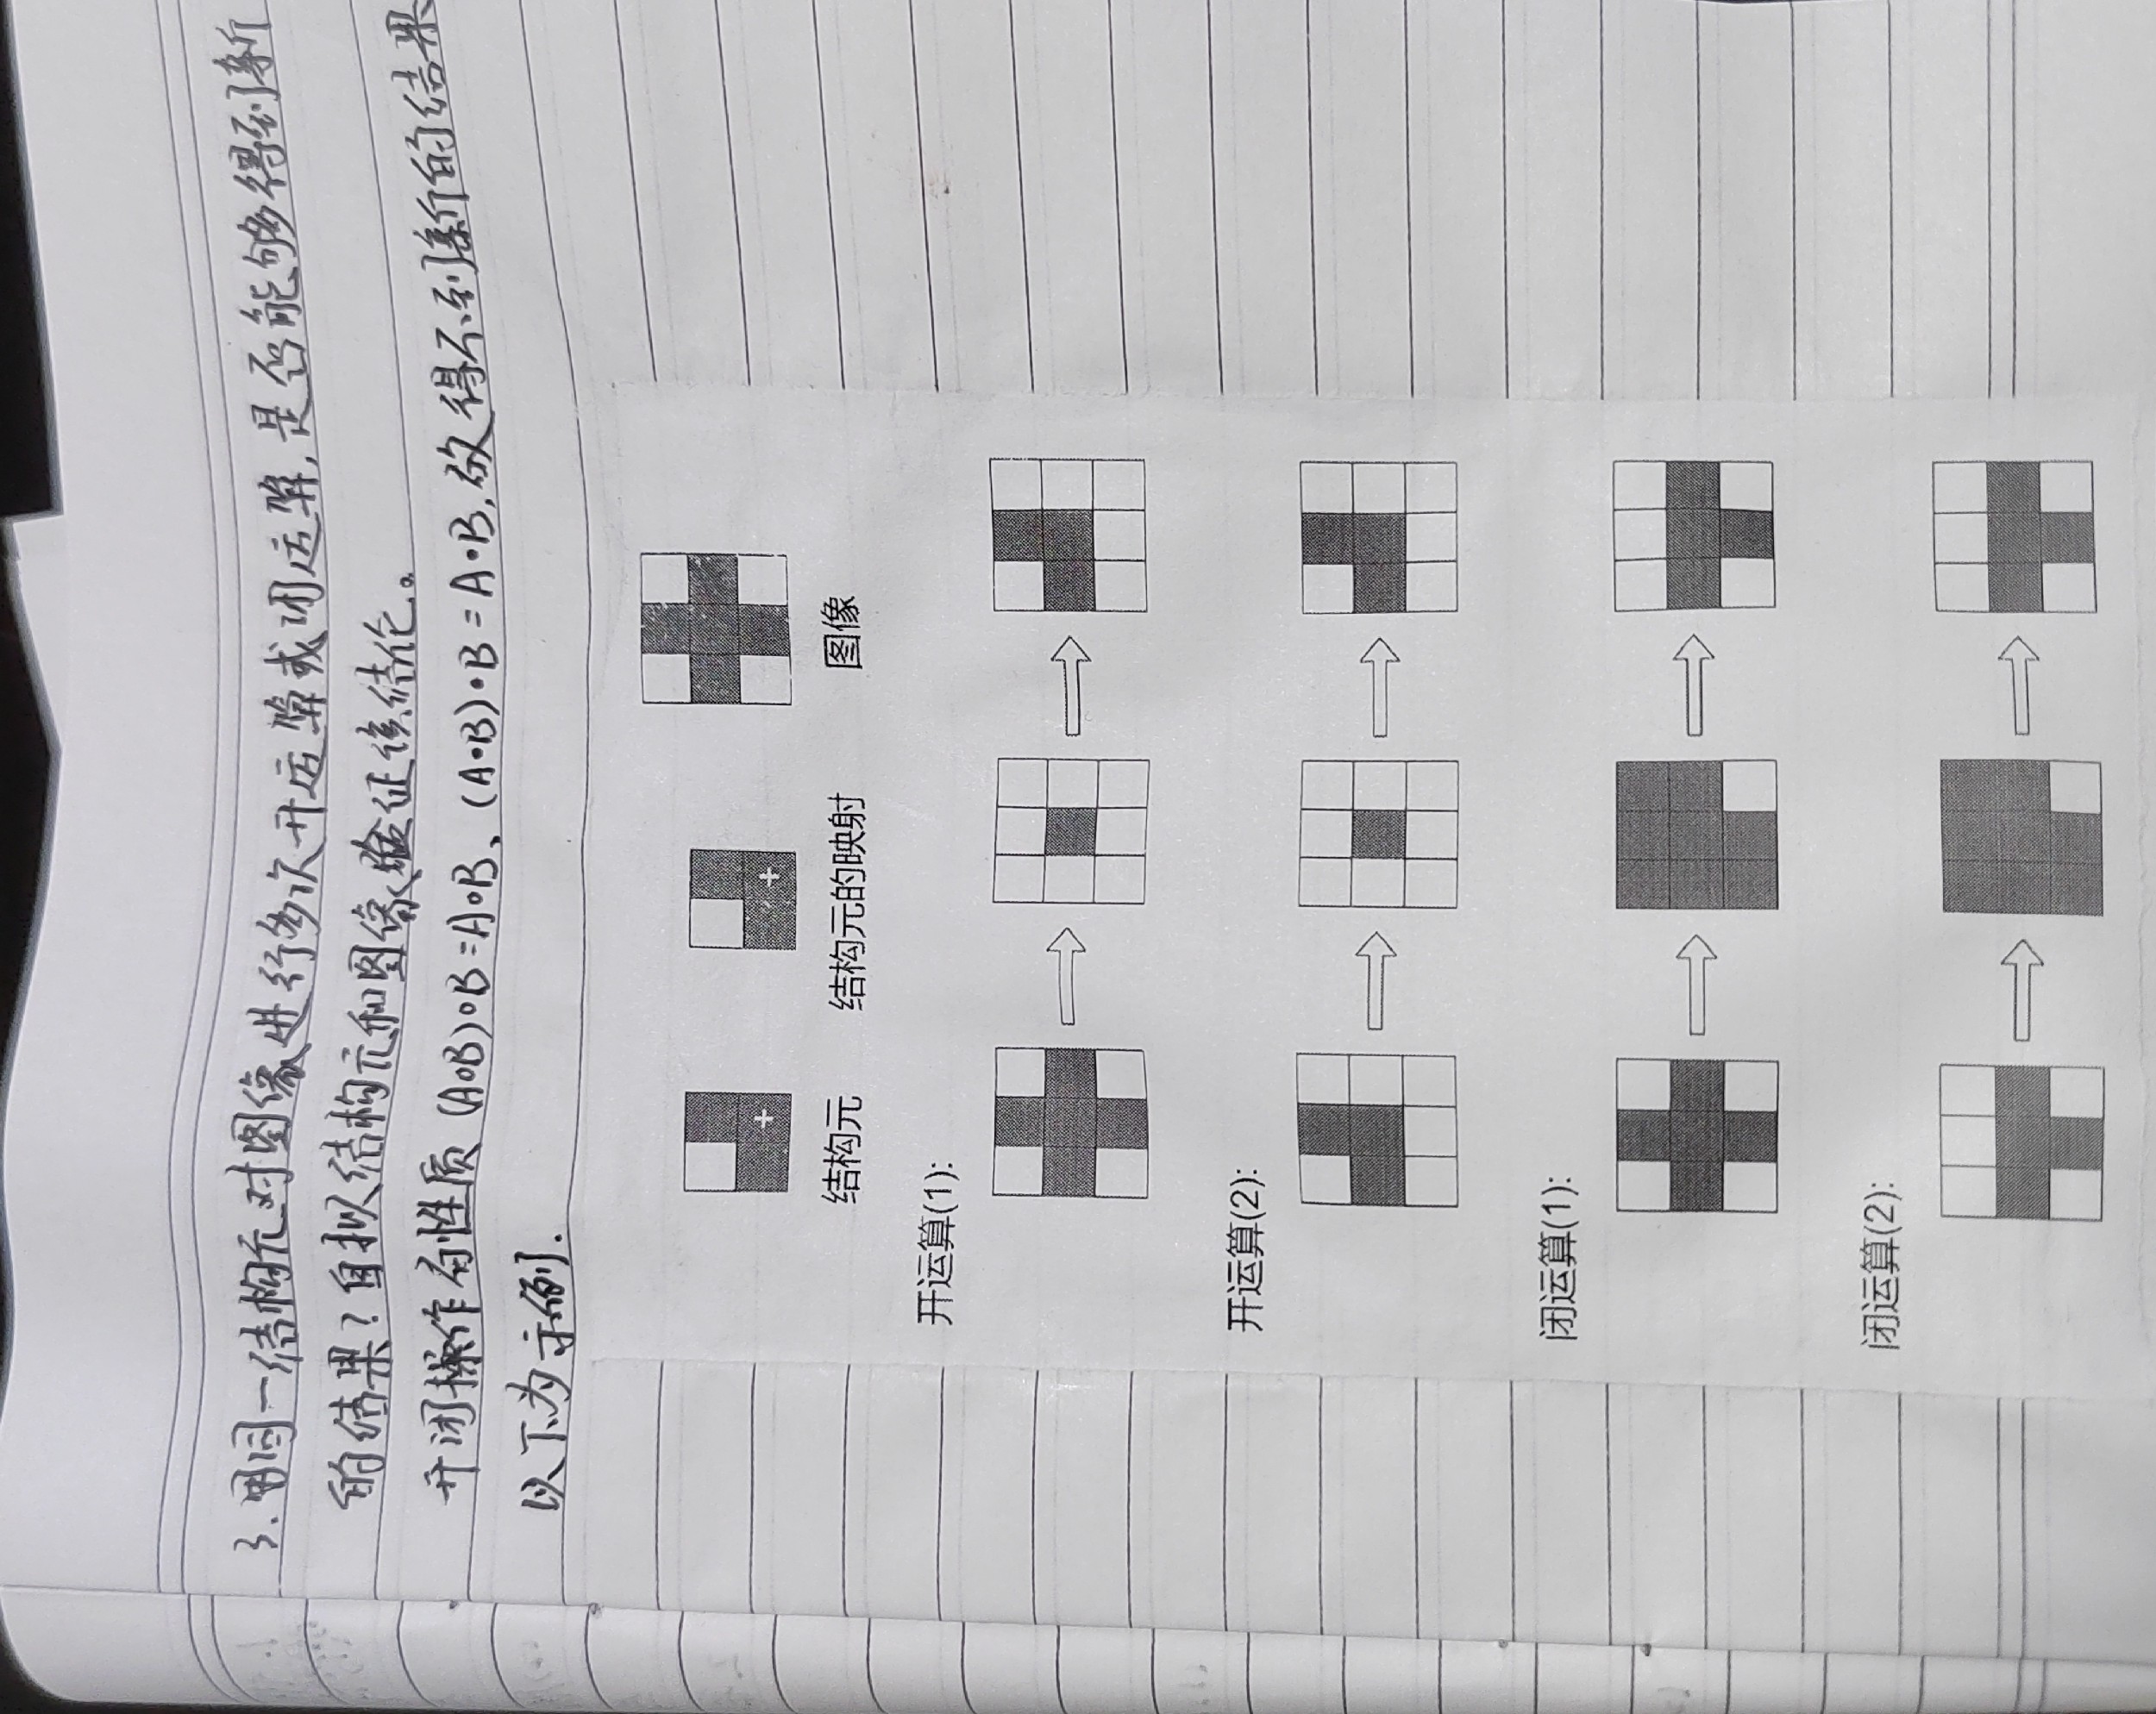 3. 用同一结构元对图像进行多次开运算或闭运算,是否能够得到新
的结果?自拟结构元和图像验证该结论。
开闭操作有性质 (A∘B)∘B=A∘B、(A•B)•B=A•B,故得不到新的结果
以下为示例.
结构元 结构元的映射 图像
开运算(1):
开运算(2):
闭运算(1):
闭运算(2):